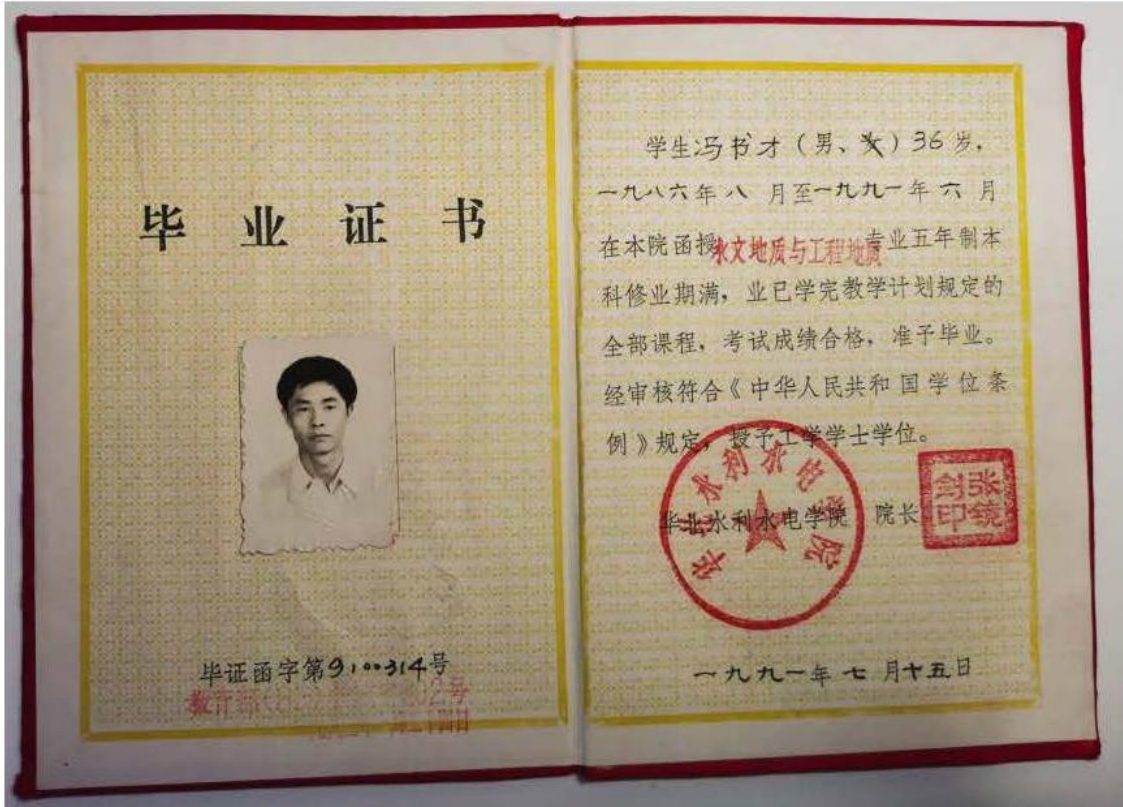 毕业证书
毕证函字第9100314号
教育部
学生冯书才（男、女）36岁，
一九八六年八月至一九九一年六月
在本院函授水文地质与工程地质专业五年制本
科修业期满，业已学完教学计划规定的
全部课程，考试成绩合格，准予毕业。
经审核符合《中华人民共和国学位条
例》规定，授予工学学士学位。
华北水利水电学院 院长
华北水利水电学院
张镜
剑印
一九九一年七月十五日